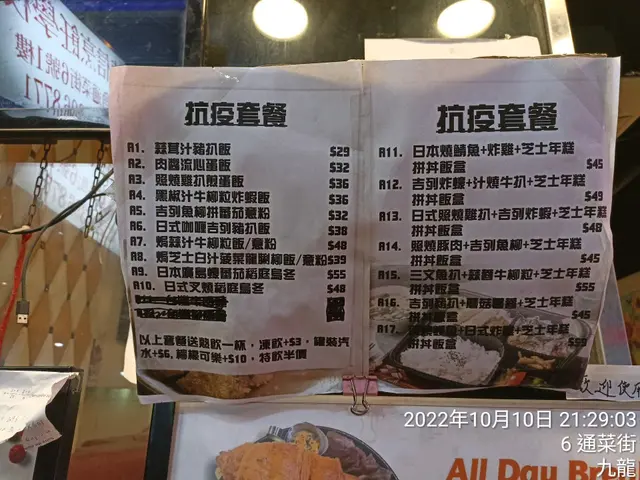 通菜街6號1樓
8771
抗疫套餐
A1. 蒜茸汁豬扒飯 $29
A2. 肉醬流心蛋飯 $32
A3. 照燒雞扒煎蛋飯 $36
A4. 黑椒汁牛柳粒炸蝦飯 $36
A5. 吉列魚柳拼蕃茄意粉 $32
A6. 日式咖喱吉列豬扒飯 $38
A7. 焗蒜汁牛柳粒飯/意粉 $48
A8. 焗芝士白汁菠菜龍脷柳飯/意粉$39
A9. 日本廣島蠔蕃茄稻庭烏冬 $55
A10. 日式叉燒稻庭烏冬 $48
以上套餐送熱飲一杯，凍飲+$3，罐裝汽
水+$6，檸樂可樂+$10，特飲半價
抗疫套餐
A11. 日本燒鯖魚+炸雞+芝士年糕
拼丼飯盒 $45
A12. 吉列炸蠔+汁燒牛扒+芝士年糕
拼丼飯盒 $49
A13. 日式照燒雞扒+吉列炸蝦+芝士年糕
拼丼飯盒 $48
A14. 照燒豚肉+吉列魚柳+芝士年糕
拼丼飯盒 $45
A15. 三文魚扒+蒜蓉牛柳粒+芝士年糕
拼丼飯盒 $55
A16. 吉列豬扒+蘑菇+芝士年糕
拼丼飯盒 $45
A17. +日式炸蝦+芝士年糕
拼丼飯盒
歡迎使用
2022年10月10日 21:29:03
6 通菜街
九龍
All Day Br